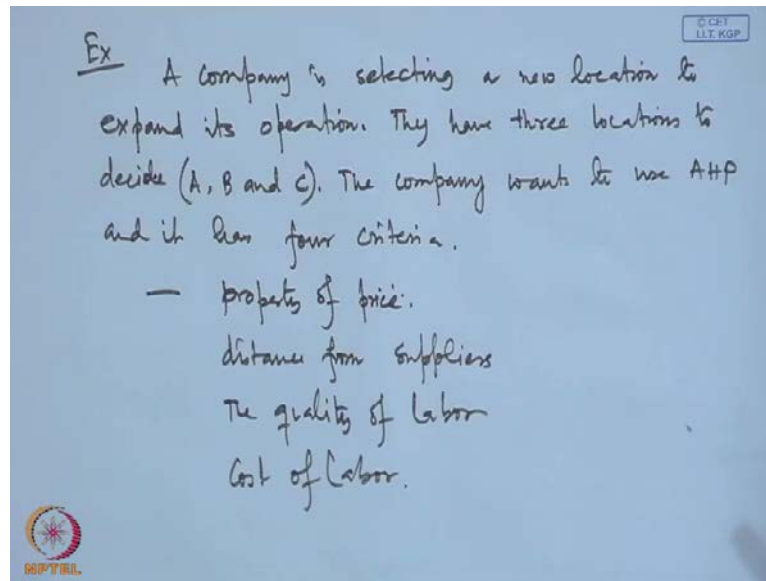 © CET
I.I.T. KGP
Ex
A company is selecting a new location to
expand its operation. They have three locations to
decide (A, B and C). The company wants to use AHP
and it has four criteria.
— property of price.
distance from suppliers
The quality of Labor
Cost of Labor.
NPTEL